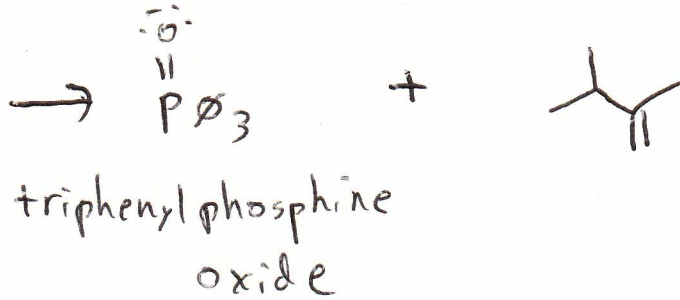 O
PØ3 +
triphenylphosphine
oxide